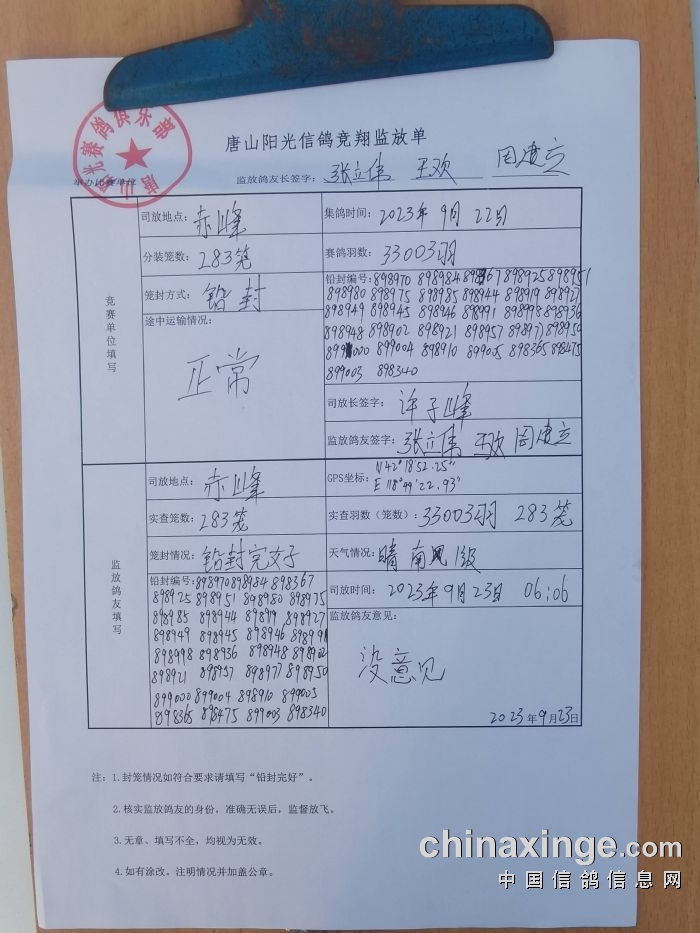 唐山阳光信鸽竞翔监放单
举办比赛单位
监放鸽友长签字：张立伟 王欢 周建立
竞赛单位填写
司放地点：赤峰
集鸽时间：2023年9月22日
分装笼数：283笼
赛鸽羽数：33003羽
笼封方式：铅封
铅封编号：898970 898984 898367 898925 898951
898980 898975 898985 898944 898919 898927
898949 898945 898946 898991 898998 898936
898948 898902 898921 898957 898977 898950
899000 899004 898910 899005 898365 898475
899003 898340
途中运输情况：
正常
司放长签字：许子峰
监放鸽友签字：张立伟 王欢 周建立
监放鸽友填写
司放地点：赤峰
GPS坐标：N42°18'52.25"
E 118°49'22.93"
实查笼数：283笼
实查羽数（笼数）：33003羽 283笼
笼封情况：铅封完好
天气情况：晴 南风1级
铅封编号：898970 898984 898367
898925 898951 898980 898975
898985 898944 898919 898927
898949 898945 898946 898991
898998 898936 898948 898902
898921 898957 898977 898950
899000 899004 898910 899005
898365 898475 899003 898340
司放时间：2023年9月23日 06:06
监放鸽友意见：
没意见
2023年9月23日
注：1.封笼情况如符合要求请填写“铅封完好”。
2.核实监放鸽友的身份，准确无误后，监督放飞。
3.无章、填写不全，均视为无效。
4.如有涂改，注明情况并加盖公章。
chinaxinge.com
中国信鸽信息网